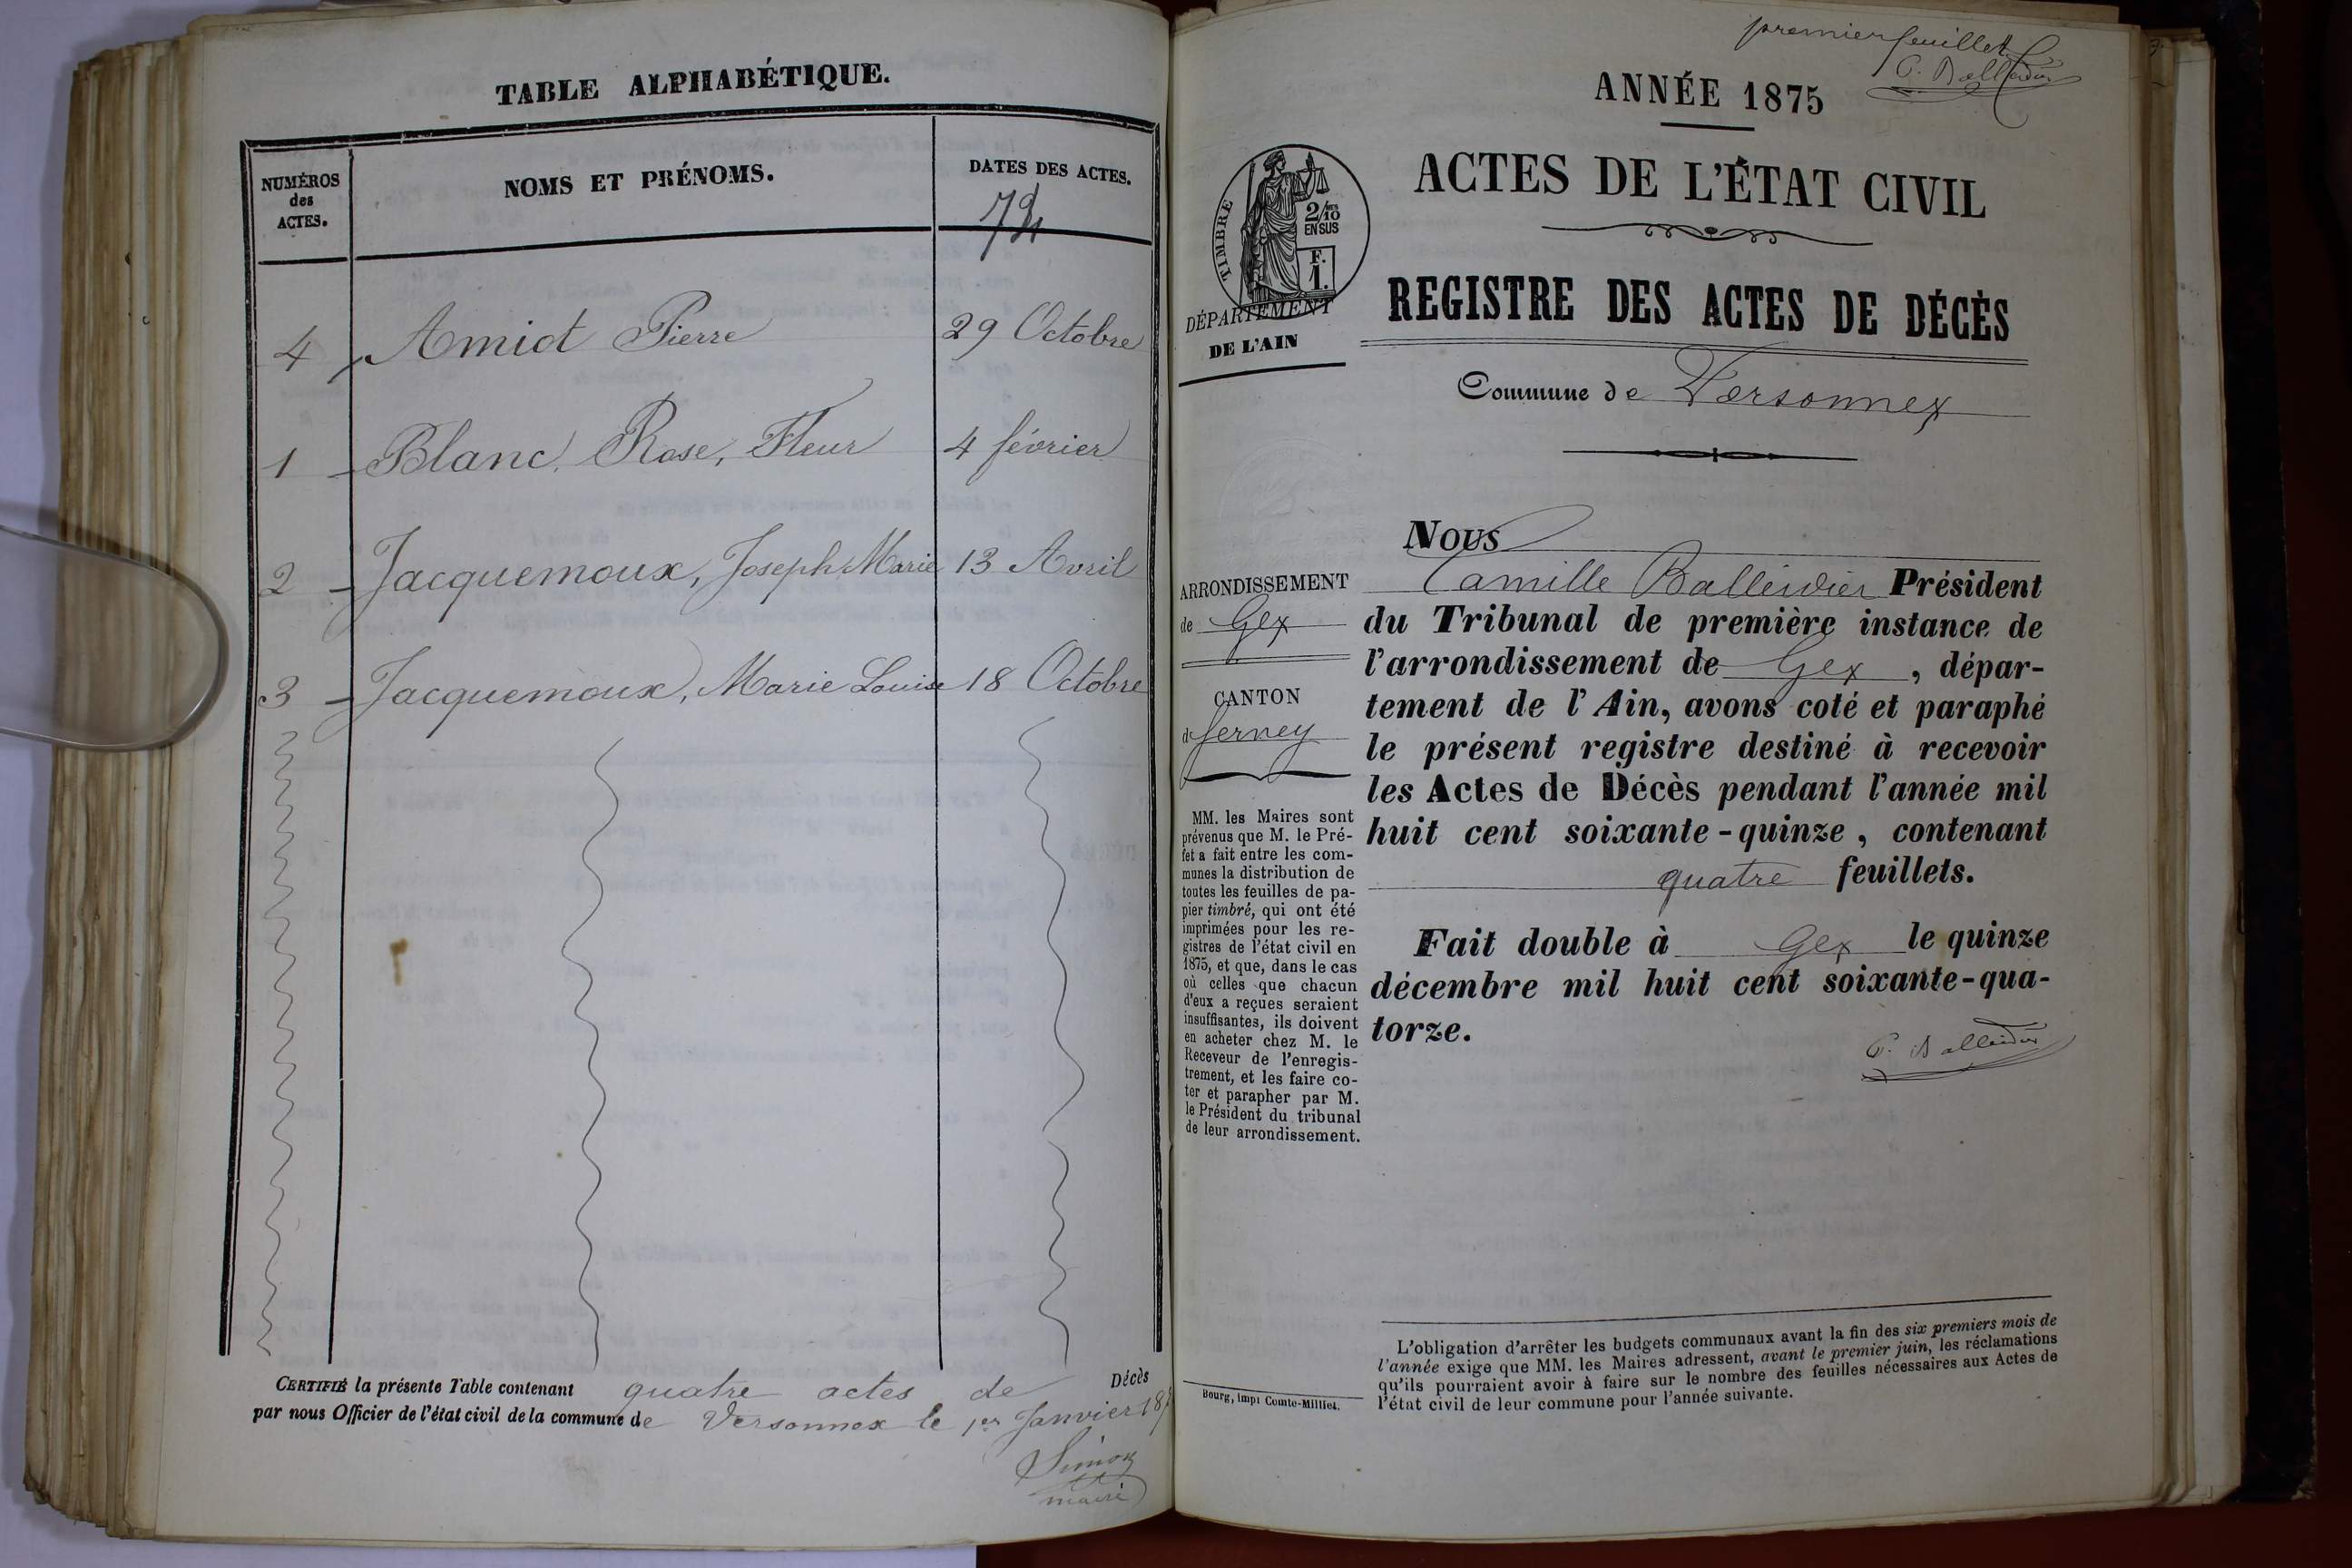 TABLE ALPHABÉTIQUE.
NUMÉROS
des
ACTES.
NOMS ET PRÉNOMS.
DATES DES ACTES.
74
4 Amiot Pierre 29 Octobre
1 Blanc, Rose, Fleur 4 février
2 Jacquemoux, Joseph Marie 13 Avril
3 Jacquemoux, Marie Louise 18 Octobre
CERTIFIÉ la présente Table contenant quatre actes de Décès
par nous Officier de l'état civil de la commune de Versonnex le 1er Janvier 18
Simon
maire
premier feuillet
C. Balleidier
ANNÉE 1875
ACTES DE L'ÉTAT CIVIL
TIMBRE
2/10 EN SUS
F.
1.
DÉPARTEMENT
DE L'AIN
REGISTRE DES ACTES DE DÉCÈS
Commune de Versonnex
ARRONDISSEMENT
de Gex
CANTON
de ferney
MM. les Maires sont
prévenus que M. le Pré-
fet a fait entre les com-
munes la distribution de
toutes les feuilles de pa-
pier timbré, qui ont été
imprimées pour les re-
gistres de l'état civil en
1875, et que, dans le cas
où celles que chacun
d'eux a reçues seraient
insuffisantes, ils doivent
en acheter chez M. le
Receveur de l'enregis-
trement, et les faire co-
ter et parapher par M.
le Président du tribunal
de leur arrondissement.
Nous
Camille Balleidier Président
du Tribunal de première instance de
l'arrondissement de Gex, dépar-
tement de l'Ain, avons coté et paraphé
le présent registre destiné à recevoir
les Actes de Décès pendant l'année mil
huit cent soixante-quinze, contenant
quatre feuillets.
Fait double à Gex le quinze
décembre mil huit cent soixante-qua-
torze.
C. Balleidier
Bourg, impr Comte-Milliet.
L'obligation d'arrêter les budgets communaux avant la fin des six premiers mois de
l'année exige que MM. les Maires adressent, avant le premier juin, les réclamations
qu'ils pourraient avoir à faire sur le nombre des feuilles nécessaires aux Actes de
l'état civil de leur commune pour l'année suivante.